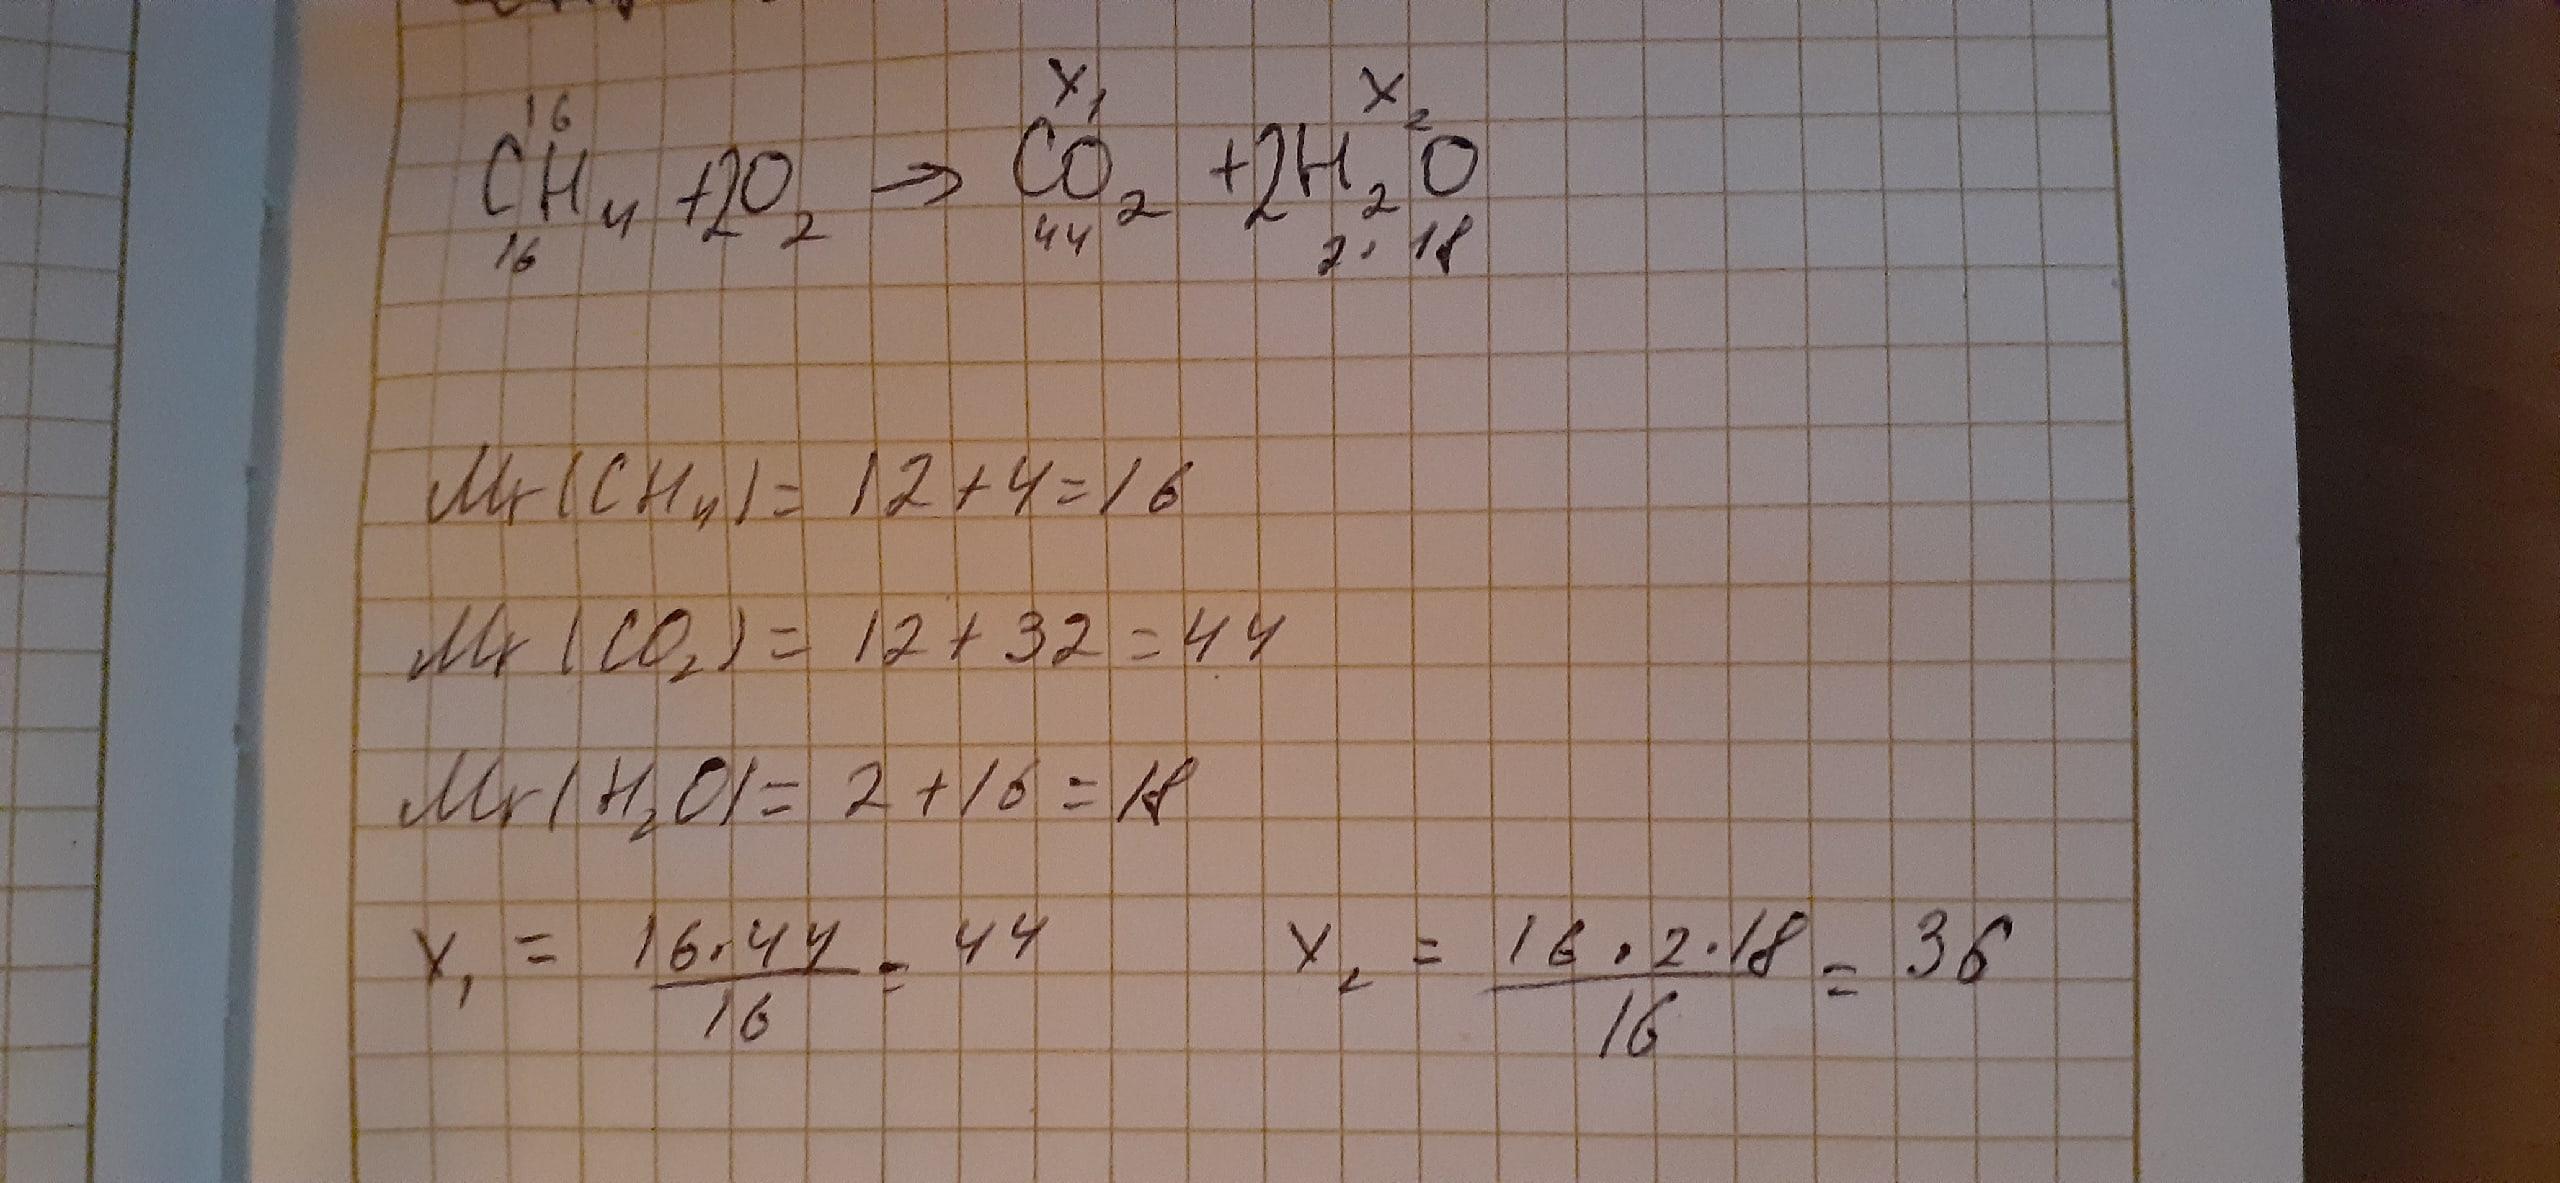 16 x₁ x₂
CH₄ + 2O₂ → CO₂ + 2H₂O
16 44 2·18
Mr(CH₄) = 12 + 4 = 16
Mr(CO₂) = 12 + 32 = 44
Mr(H₂O) = 2 + 16 = 18
x₁ = 16·44/16 = 44 x₂ = 16·2·18/16 = 36